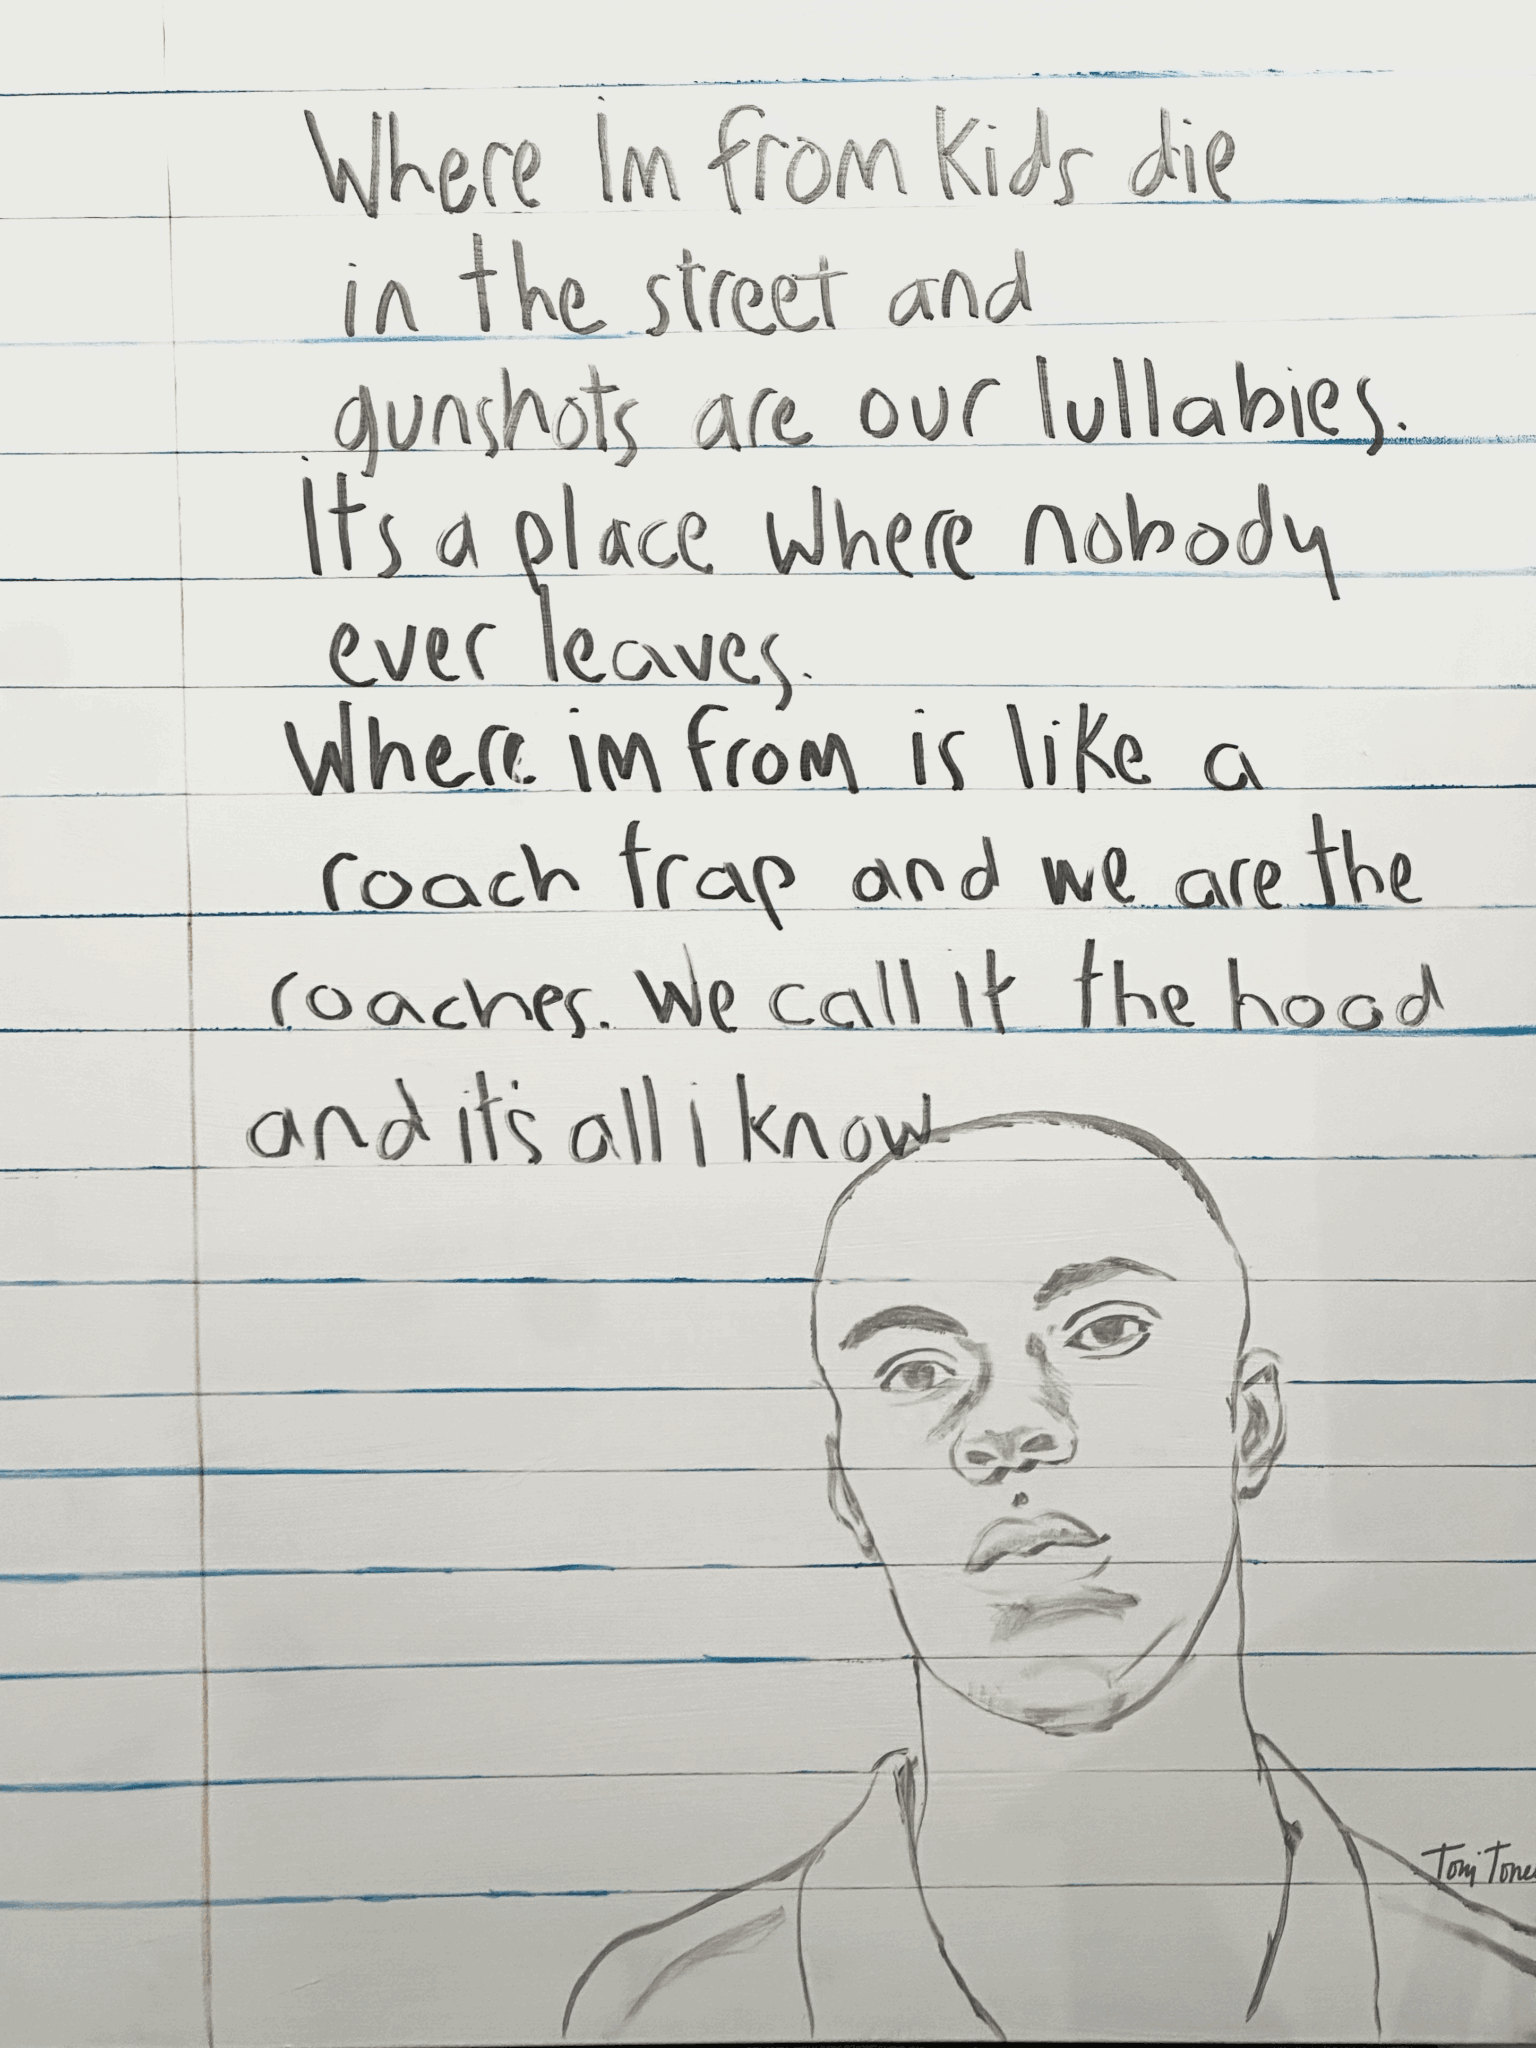 Where Im from kids die
in the street and
gunshots are our lullabies.
It's a place where nobody
ever leaves.
Where im from is like a
roach trap and we are the
roaches. We call it the hood
and it's all i know